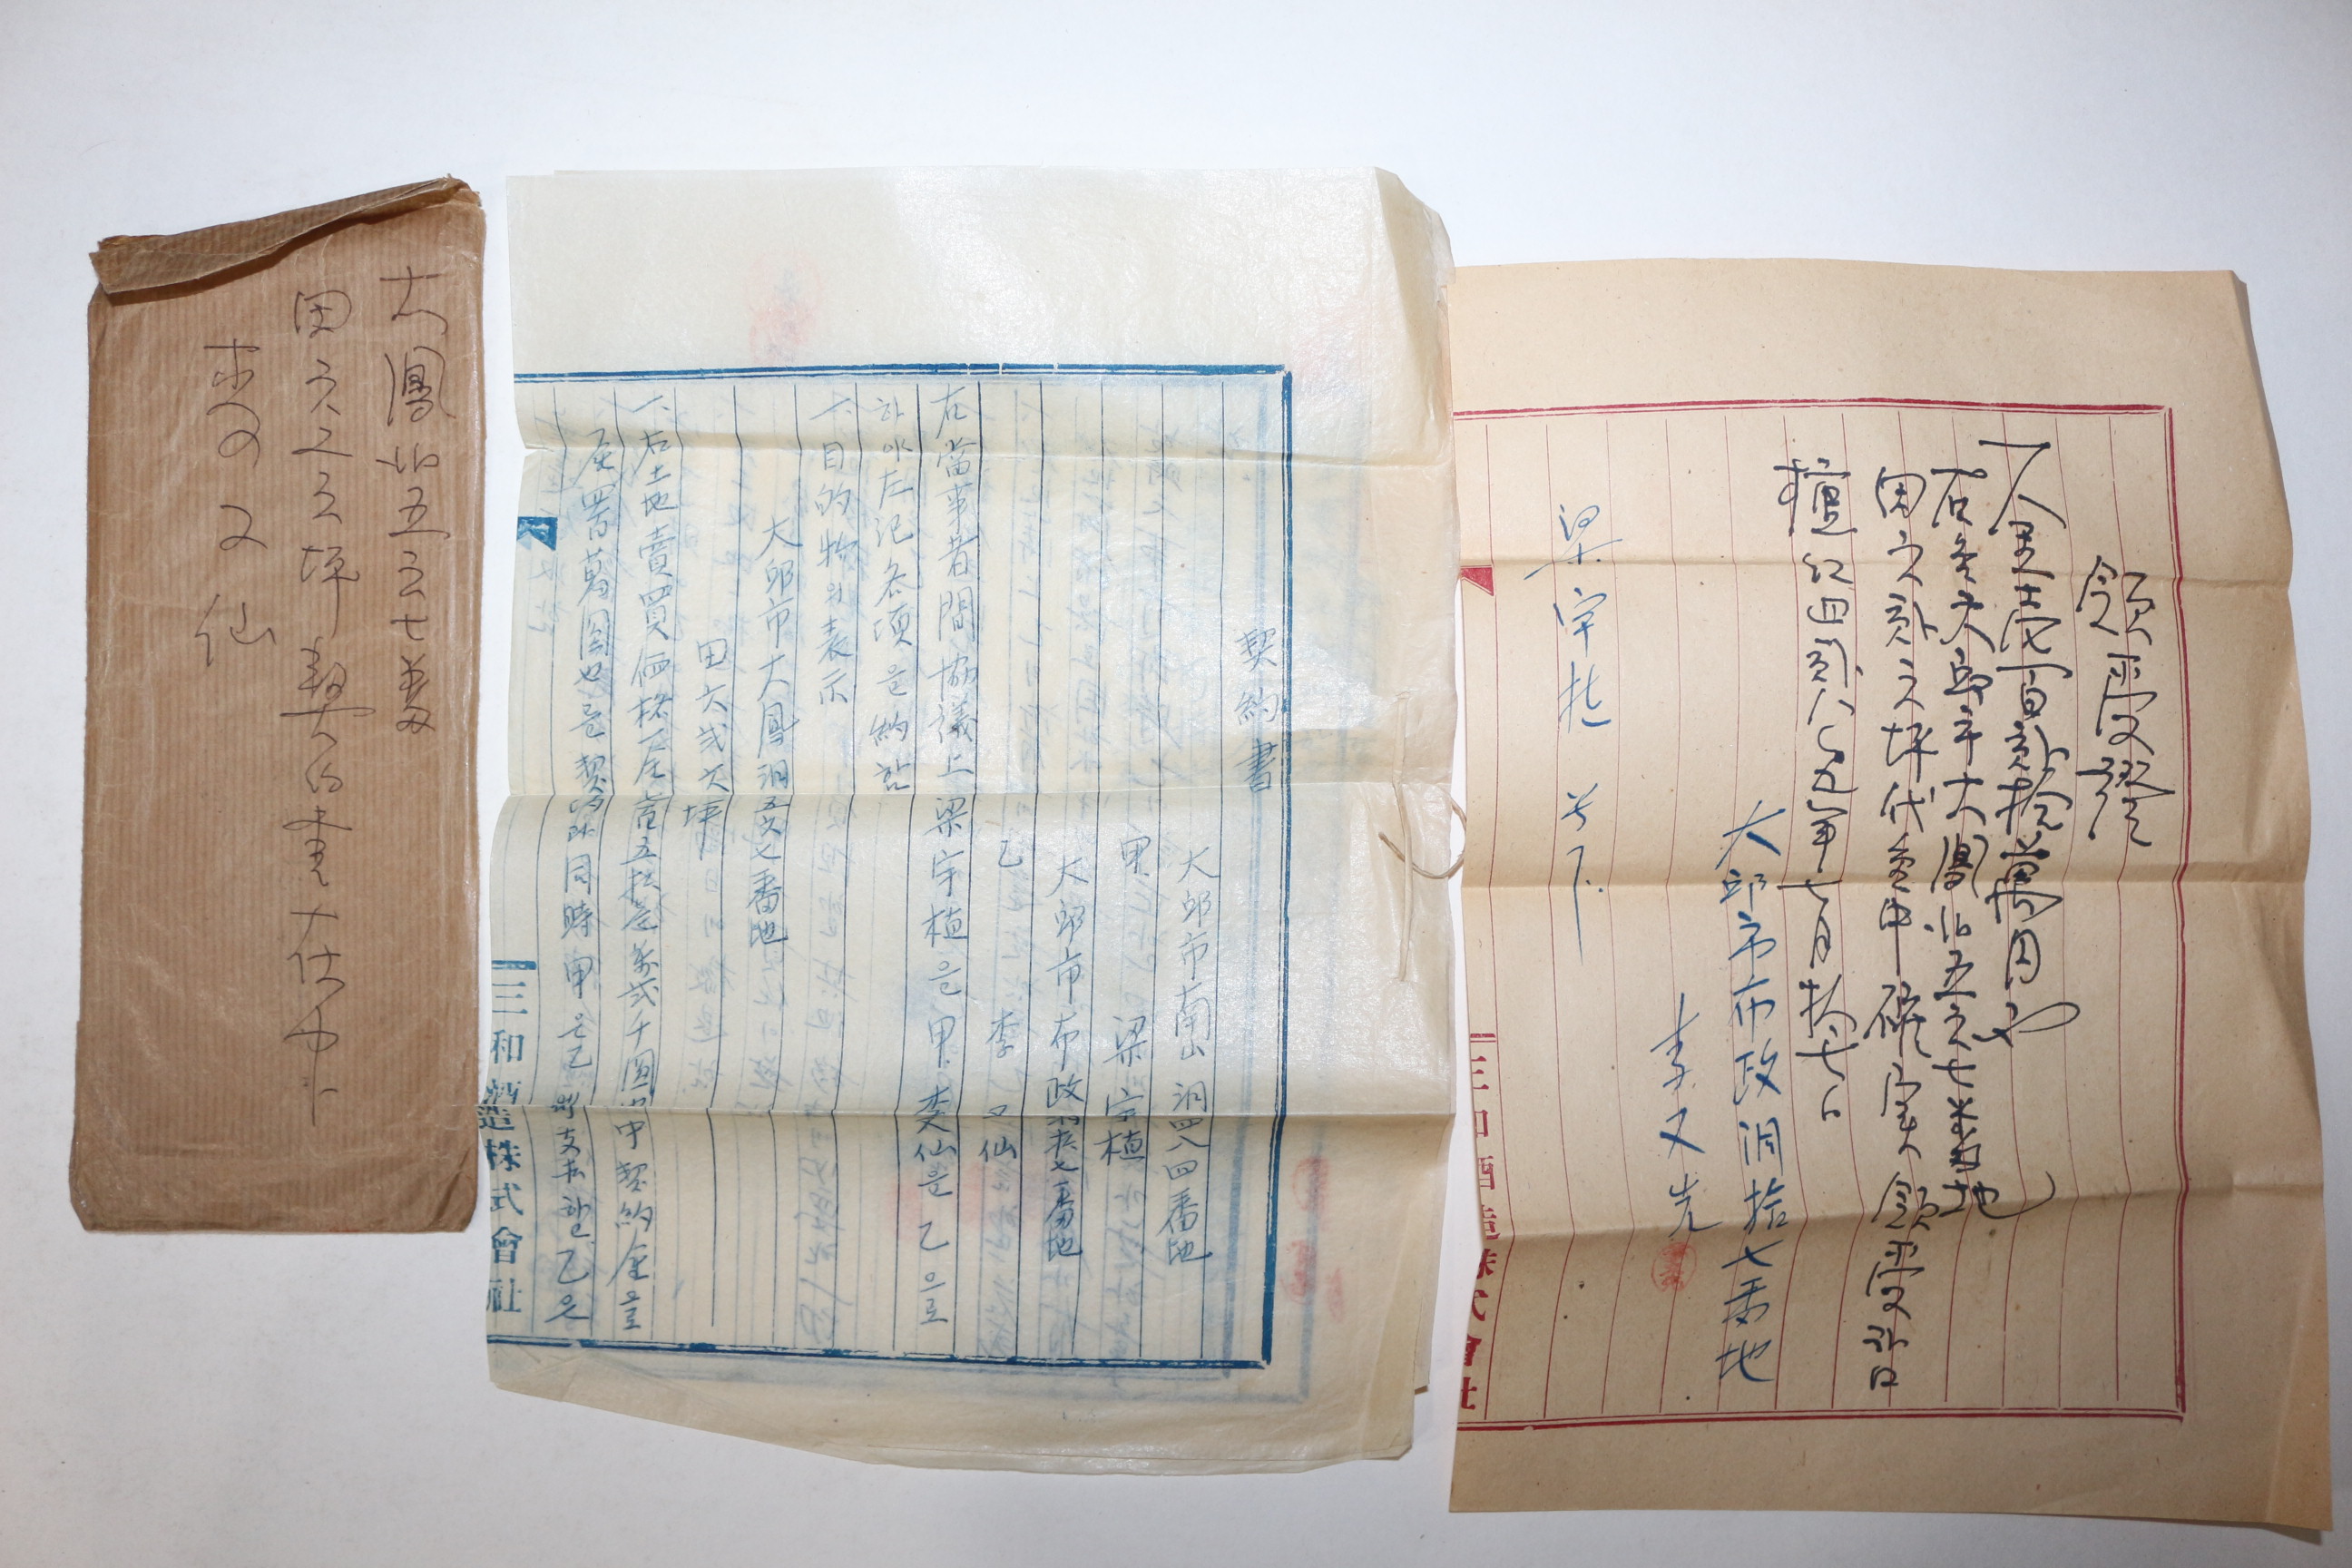 領受證
一金壱百貳拾萬円也
右金大邱市大鳳洞五六七番地
田六貳六坪代金中 確実領受함
檀紀四貳八五年七月拾七日
大邱市布政洞拾七番地
李又先
梁宇植 貴下
契約書
大邱市南山洞四八四番地
甲 梁宇植
大邱市布政洞拾七番地
乙 李又仙
右當事者間協議上梁宇植은甲 李又仙은乙으로
하야左記各項을約함
一、目的物의表示
大邱市大鳳洞五六七番地
田六弍六坪
一、右土地賣買価格 壱五拾 萬弍千圓 中契約金으로
萬圓也을契約과同時甲은乙 支拂하고乙은
三和酒造株式會社
三和酒造株式會社
大鳳洞五六七番
田六二六坪 契約書在中
李又仙